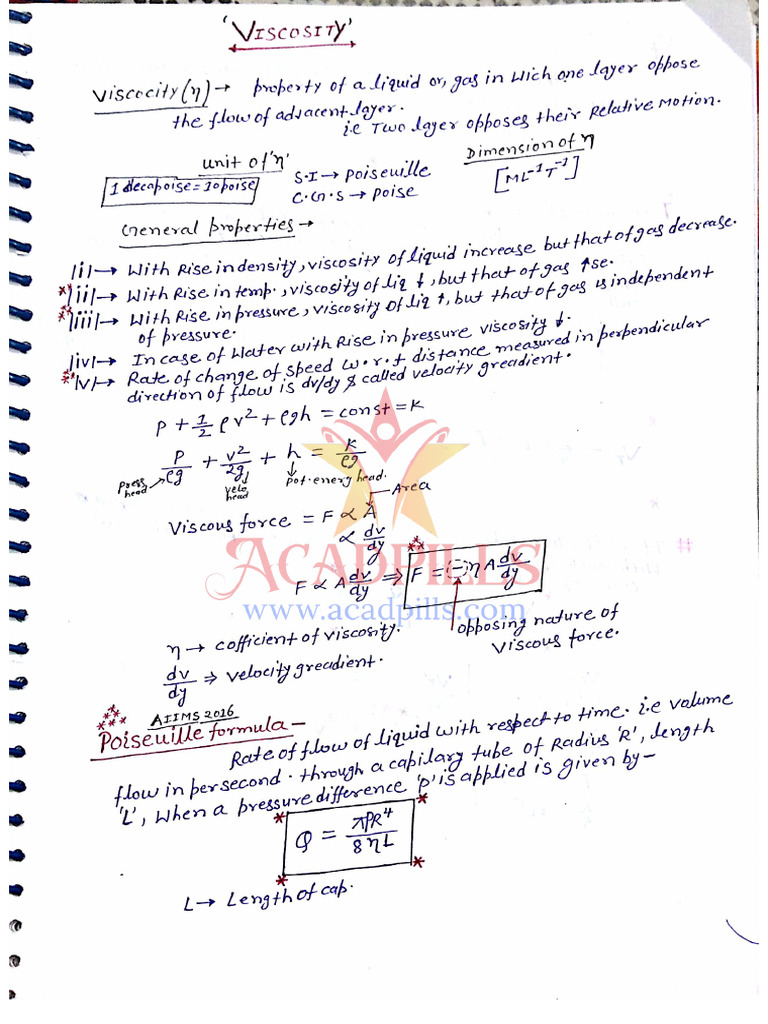 'VISCOSITY'
Viscocity (η) → property of a liquid or, gas in which one layer oppose
the flow of adjacent layer.
i.e Two layer opposes their Relative Motion.
unit of 'η'
1 decapoise = 10 poise
S.I → Poiseuille
C.G.S → poise
Dimension of η
[ML⁻¹T⁻¹]
General properties →
|i| → With Rise in density, viscosity of liquid increase but that of gas decrease.
*|ii| → With Rise in temp., viscosity of liq ↓, but that of gas ↑se.
**|iii| → With Rise in pressure, viscosity of liq ↑, but that of gas is independent
of pressure.
|iv| → In case of Water with Rise in pressure viscosity ↓.
*|v| → Rate of change of speed w.r.t distance measured in perpendicular
direction of flow is dv/dy & called velocity greadient.
P + 1/2 ρv² + ρgh = const = K
P/ρg + v²/2g + h = K/ρg
press head
velo head
pot. energy head.
Area
Viscous force = F ∝ A
∝ dv/dy
F ∝ A dv/dy ⇒ F = (-) η A dv/dy
ACADPILLS
www.acadpills.com
η → cofficient of viscosity.
opposing nature of
Viscous force.
dv/dy ⇒ velocity greadient.
AIIMS 2016
Poiseuille formula –
Rate of flow of liquid with respect to time. i.e volume
flow in per second. through a capilary tube of Radius 'R', length
'L', When a pressure difference 'p' is applied is given by –
Q = πPR⁴/8ηL
L → Length of cap.